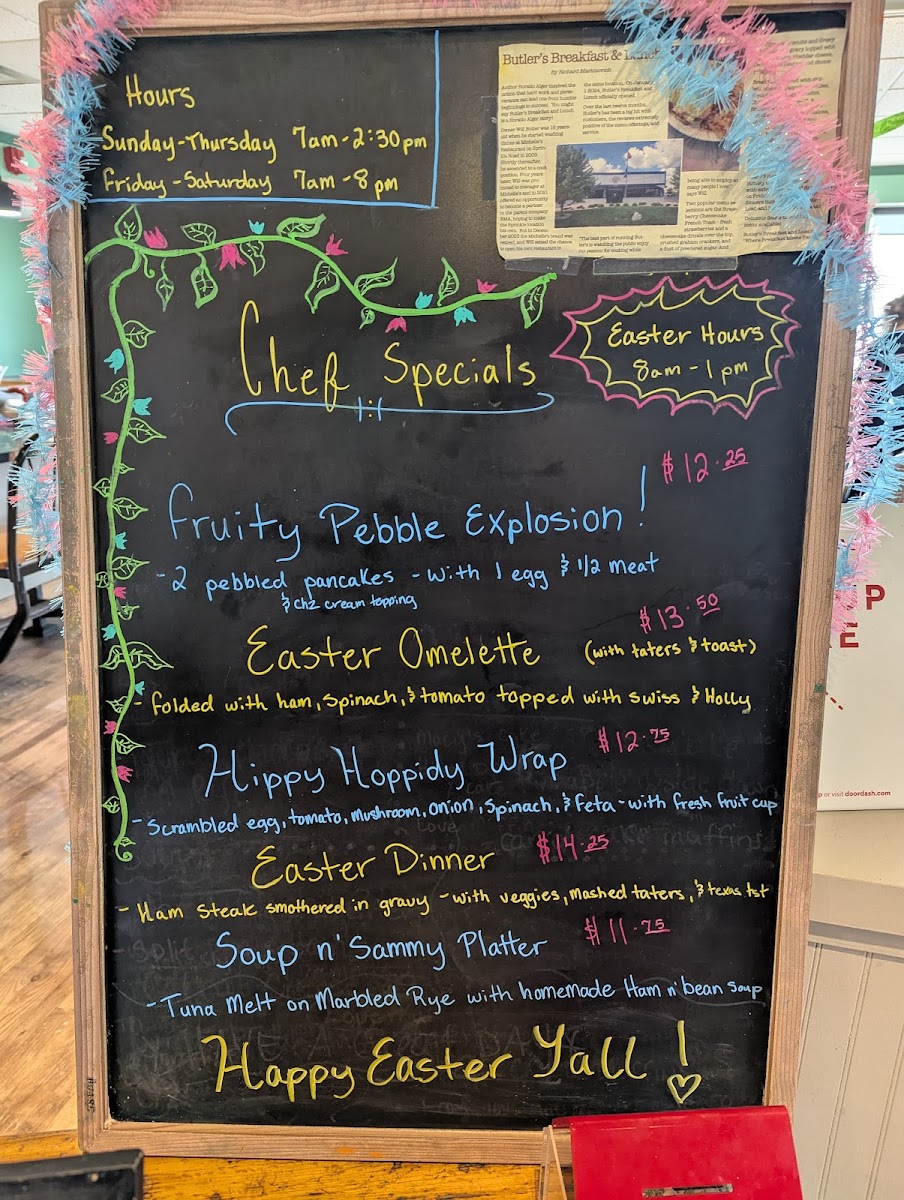 Hours
Sunday-Thursday 7am-2:30pm
Friday-Saturday 7am-8pm
Butler's Breakfast & Lunch
by Richard Martinovich
Chef Specials
Easter Hours
8am-1pm
$12.25
Fruity Pebble Explosion!
-2 pebbled pancakes - with 1 egg & 1/2 meat
& chz cream topping
$13.50
Easter Omelette (with taters & toast)
-Folded with ham, spinach, & tomato topped with swiss & Holly
$12.75
Hippy Hoppidy Wrap
-Scrambled egg, tomato, mushroom, onion, spinach, & feta - with fresh fruit cup
Easter Dinner $14.25
-Ham Steak smothered in gravy - with veggies, mashed taters, & texas tst
Soup n' Sammy Platter $11.75
-Tuna Melt on Marbled Rye with homemade Ham n' bean soup
Happy Easter Yall!
P
E
p or visit doordash.com